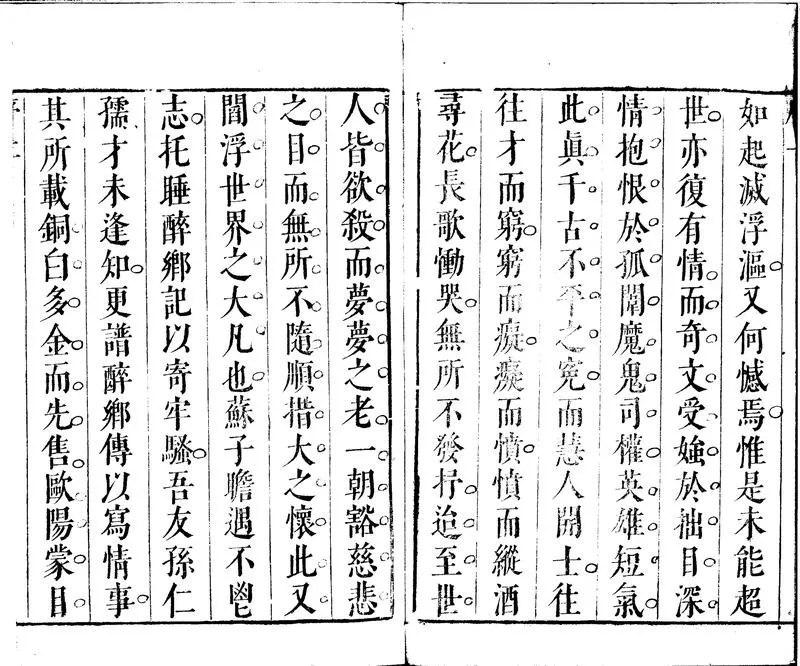 如起滅浮漚又何憾焉惟是未能超
世亦復有情而奇文受媸於拙目深
情抱恨於孤闈魔鬼司權英雄短氣
此眞千古不平之冤而慧人開士往
往才而窮窮而癡癡而憤憤而縱酒
尋花長歌慟哭無所不發抒迨至世
人皆欲殺而夢夢之老一朝豁慈悲
之目而無所不隨順措大之懷此又
閻浮世界之大凡也蘇子瞻遇不鬯
志托睡醉鄉記以寄牢騷吾友孫仁
孺才未逢知更譜醉鄉傳以寫情事
其所載銅臼多金而先售歐陽蒙目